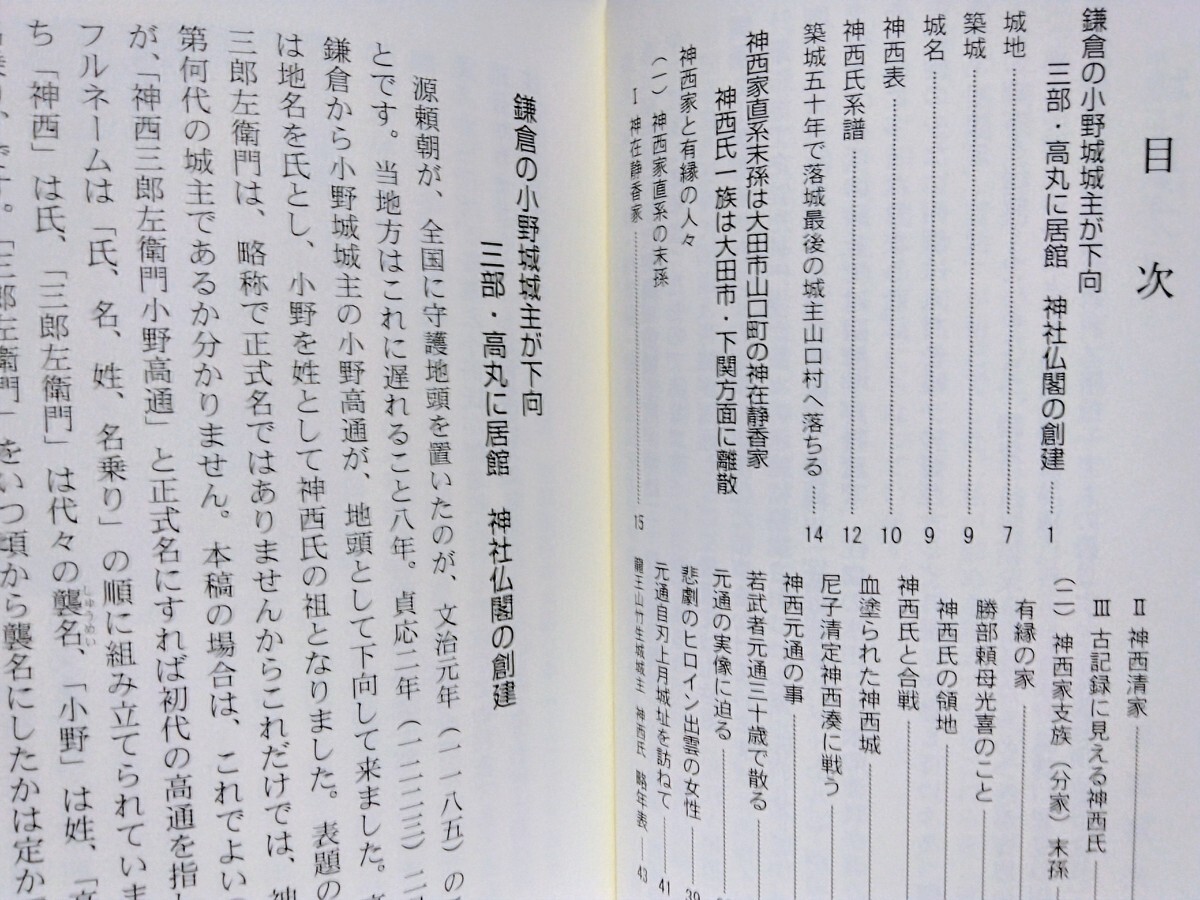 目次
鎌倉の小野城城主が下向
三部・高丸に居館 神社仏閣の創建……1
城地……7
築城……9
城名……9
神西表……10
神西氏系譜……12
築城五十年で落城最後の城主山口村へ落ちる……14
神西家直系末孫は大田市山口町の神在静香家
神西氏一族は大田市・下関方面に離散
神西家と有縁の人々
(一) 神西家直系の末孫
Ⅰ 神在静香家……15
Ⅱ 神西清家……
Ⅲ 古記録に見える神西氏……
(二) 神西家支族(分家)末孫……
有縁の家……
勝部頼母光喜のこと……
神西氏の領地……
神西氏と合戦……
血塗られた神西城……
尼子清定神西湊に戦う……
神西元通の事……
若武者元通三十歳で散る……
元通の実像に迫る……
悲劇のヒロイン出雲の女性……39
元通自刃上月城址を訪ねて……41
龍王山竹生城城主 神西氏 略年表……43
鎌倉の小野城城主が下向
三部・高丸に居館 神社仏閣の創建
源頼朝が、全国に守護地頭を置いたのが、文治元年(一一八五)の
とです。当地方はこれに遅れること八年。貞応二年(一二二三)二
鎌倉から小野城城主の小野高通が、地頭として下向して来ました。
は地名を氏とし、小野を姓として神西氏の祖となりました。表題の
三郎左衛門は、略称で正式名ではありませんからこれだけでは、神
第何代の城主であるか分かりません。本稿の場合は、これでよい
が、「神西三郎左衛門小野高通」と正式名にすれば初代の高通を指し
フルネームは「氏、名、姓、名乗り」の順に組み立てられていま
ち「神西」は氏、「三郎左衛門」は代々の襲名、「小野」は姓、「高
しゅうめい
です。「三郎左衛門」をいつ頃から襲名にしたかは定か